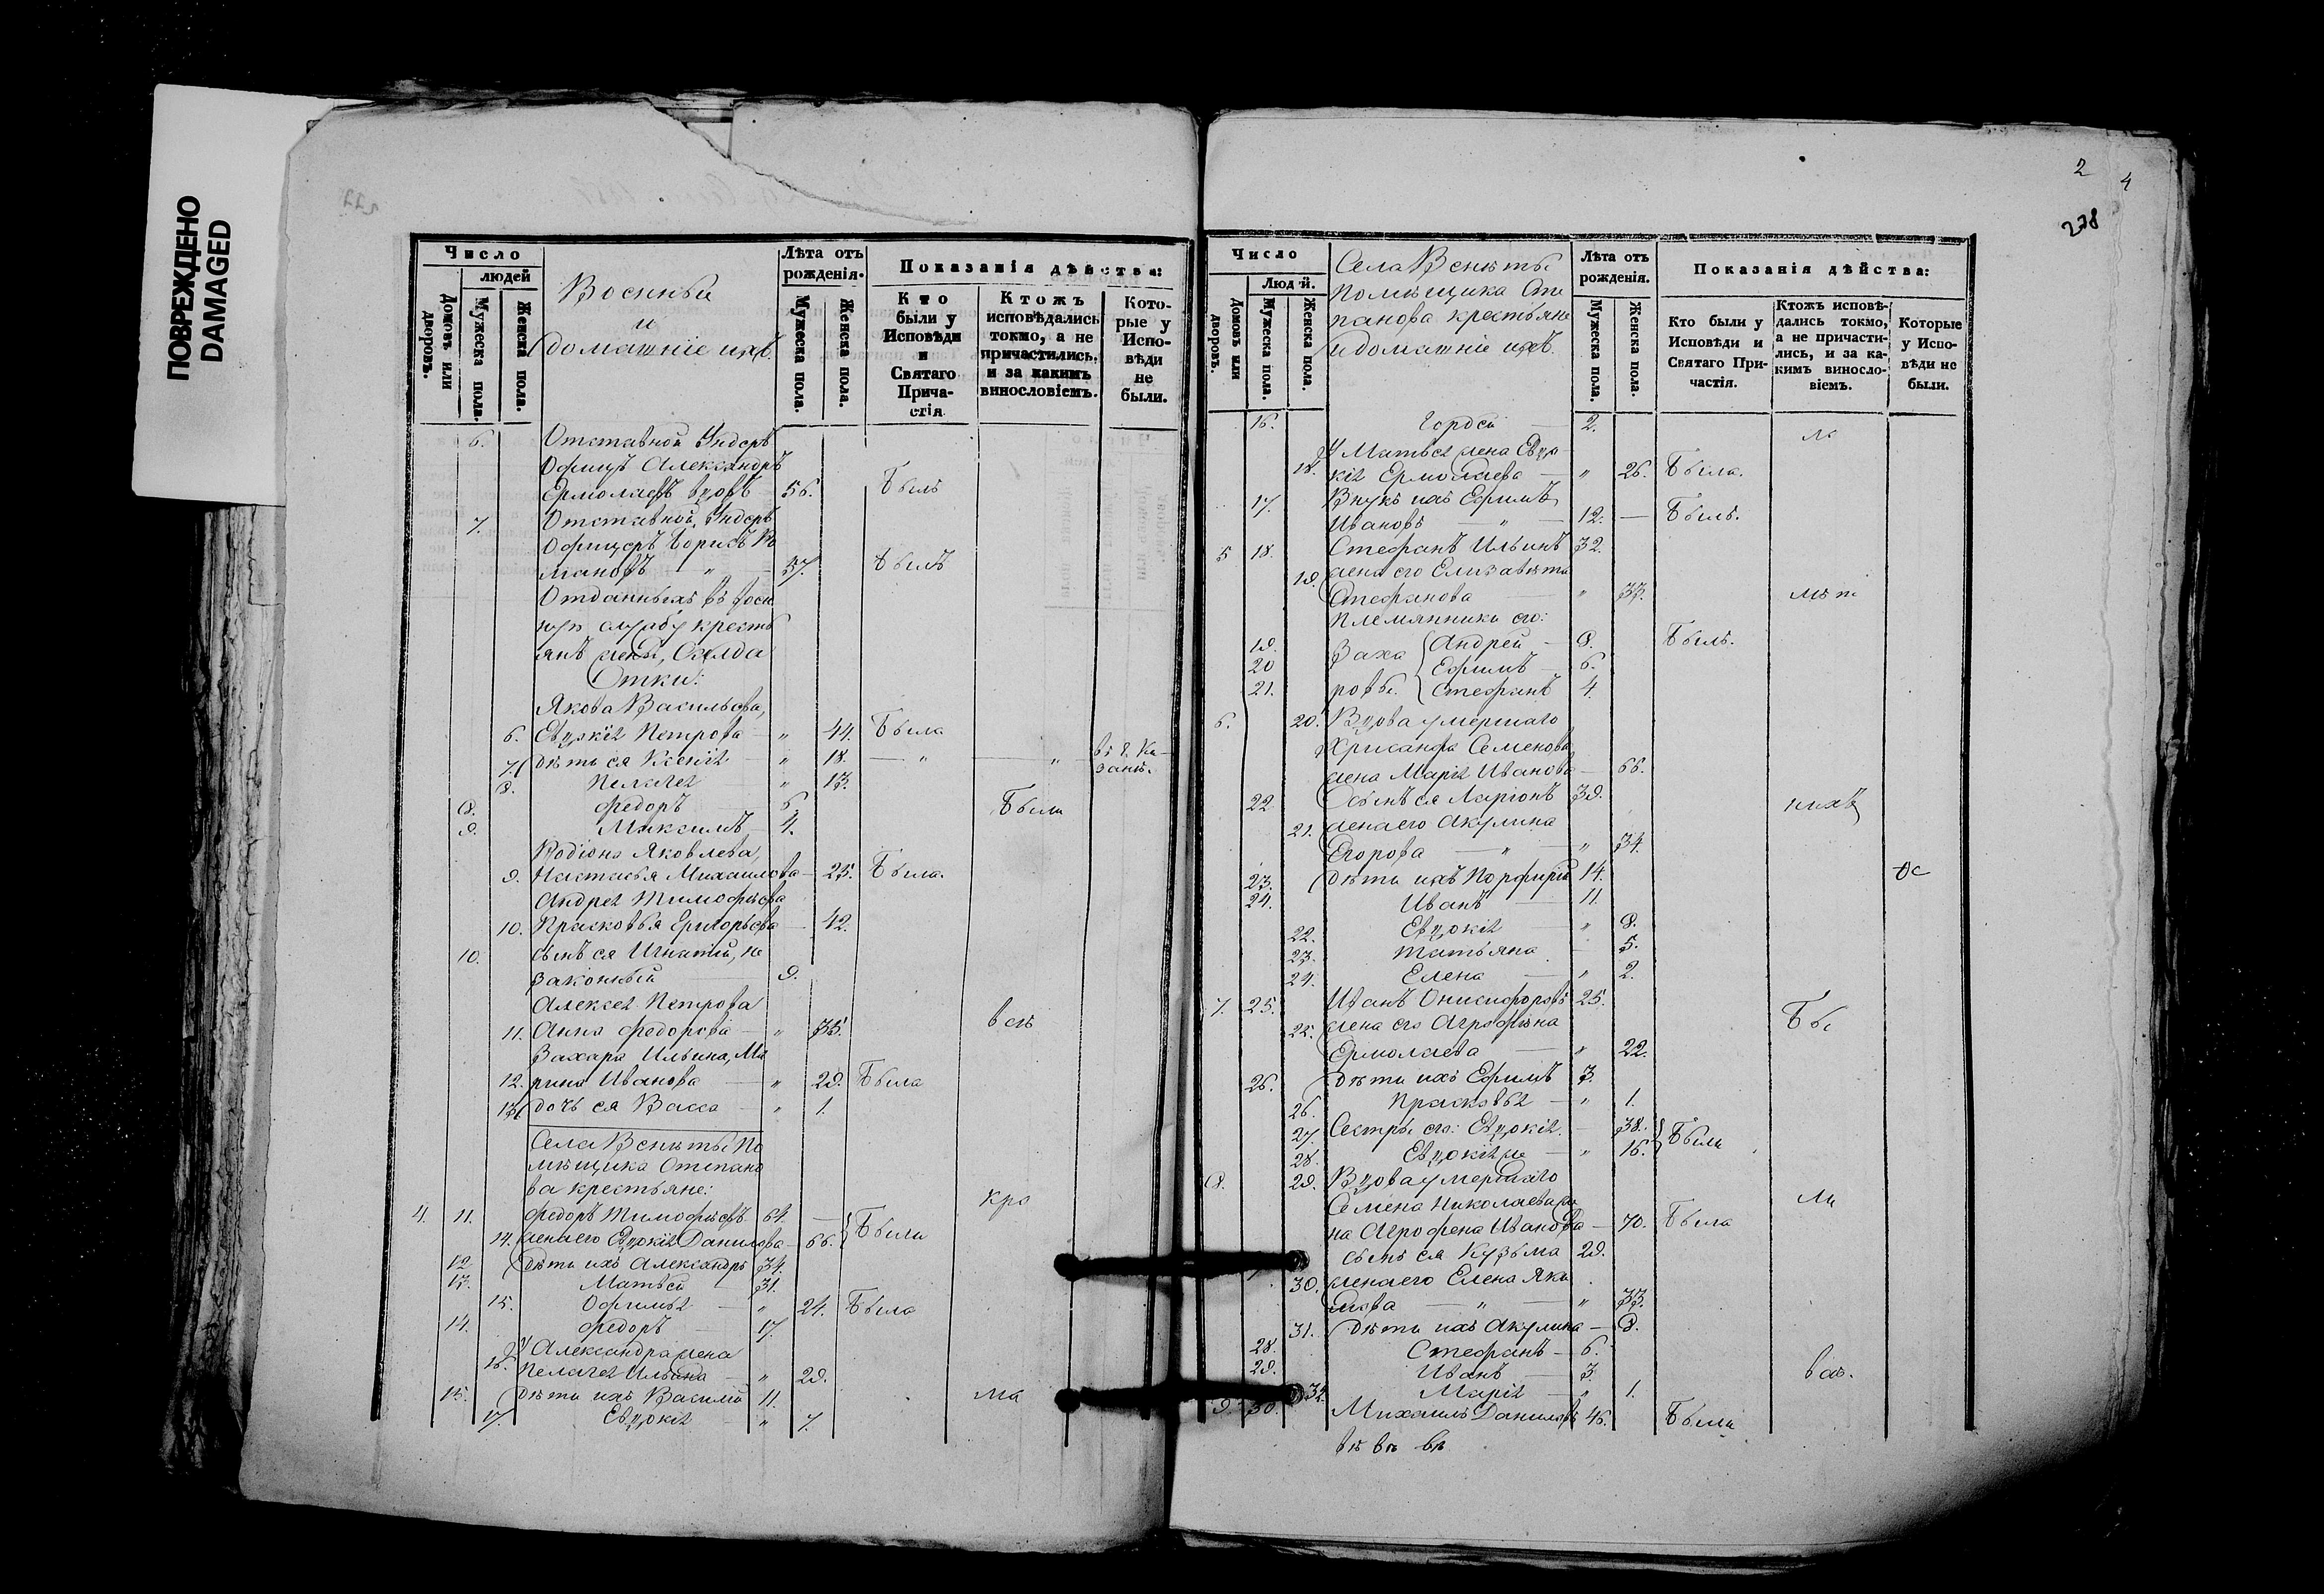 ПОВРЕЖДЕНО
DAMAGED
Число
людей
Домовъ или дворовъ.
Мужеска пола.
Женска пола.
Военные
и
домашніе ихъ.
Лѣта отъ рожденія.
Мужеска пола.
Женска пола.
Показанія дѣйства:
Кто были у Исповѣди и Святаго Причастія
Ктожъ исповѣдались токмо, а не причастились, и за какимъ винословіемъ.
Которые у Исповѣди не были.
6. Отставной Ундеръ
Офицръ Александръ
Ермолаевъ вдовъ 56. Былъ
7. Отставной Ундеръ
Офицеръ Борисъ Ро
мановъ " 57. былъ
Отданныхъ въ воен
ную службу кресть
янъ жены, Солда
отки:
Якова Васильева,
6. Евдокія Петрова " 44. Была
7. дѣти ея Ксенія " 18. — " — " въ г. Ка-
зани.
8. Пелагея " 13.
8. Федоръ 6. Были
9. Максимъ 4.
Родіона Яковлева,
9. Настасья Михаилова — 25. Была.
Андрея Тимофѣева
10. Прасковья Григорьева — 42.
10. сынъ ея Игнатій, не
законный 9.
Алексея Петрова
11. Анна Федорова — " 35. всѣ
Захара Ильина, Ма
12. рина Иванова — " 29. Была
13. дочь ея Васса — " 1.
Села Венеты по
мѣщика Степано
ва крестьяне: кро
4. 11. Федоръ Тимофѣевъ 64. —
14. жена его Евдокія Данилова — 66. Были
12. дѣти ихъ Александръ 34.
13. Матвей 31.
15. Офимья — " 24. Была
14. Федоръ — 17.
У Александра жена
16. Пелагея Ильина — " 29.
15. дѣти ихъ Василій 11. ма
17. Евдокія — " 7.
2
4
278
Число
Людей.
Домовъ или дворовъ.
Мужеска пола.
Женска пола.
Села Венеты
помѣщика Сте
панова крестьяне
и домашніе ихъ.
Лѣта отъ рожденія.
Мужеска пола.
Женска пола.
Показанія дѣйства:
Кто были у Исповѣди и Святаго Причастія.
Ктожъ исповѣдались токмо, а не причастились, и за какимъ винословіемъ.
Которые у Исповѣди не были.
16. Гордей — 2.
У Матвея жена Евдо
18. кія Ермолаева — " 26. Была.
17. Внукъ ихъ Ефимъ
Ивановъ — " — 12. — Былъ.
5 18. Стефанъ Ильинъ 32.
19. жена его Елизавета
Стефанова — " 33. лѣт
племянники его:
19. Заха Андрей — 8. Былъ.
20 Ефимъ — 6.
21. ровы. Стефанъ 4.
6. 20. Вдова умершаго
Хрисанфа Семенова
жена Марія Иванова — 66.
22. Сынъ ея Ларіонъ 39. нихъ
21. жена его Акулина
Егорова — " — " 34.
23. дѣти ихъ Порфирій 14.
24. Иванъ — 11.
22. Евдокія — " 8.
23. Татьяна — 5.
24. Елена — " 2.
7. 25. Иванъ Онисифоровъ 25.
25. жена его Агрофена
Ермолаева — " 22.
26. дѣти ихъ Ефимъ 3.
26. Прасковья — " 1.
27. Сестры его: Евдокія — 38. Были
28. Евдокія же — " 16.
8. 29. Вдова умершаго
Семена Николаева же
на Агрофена Иванова — 70. Была
сынъ ея Кузьма 29.
30. жена его Елена Яко
влева — " — " 33.
31. дѣти ихъ Акулина — 8.
28. Стефанъ — 6.
29. Иванъ — 3.
32. Марія — " 1.
9. 30. Михаилъ Даниловъ 46. Были